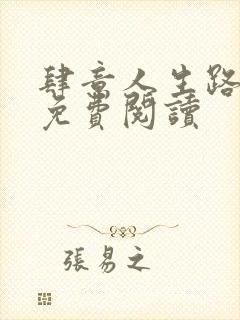 肆意人生路
免費閱讀
張易之